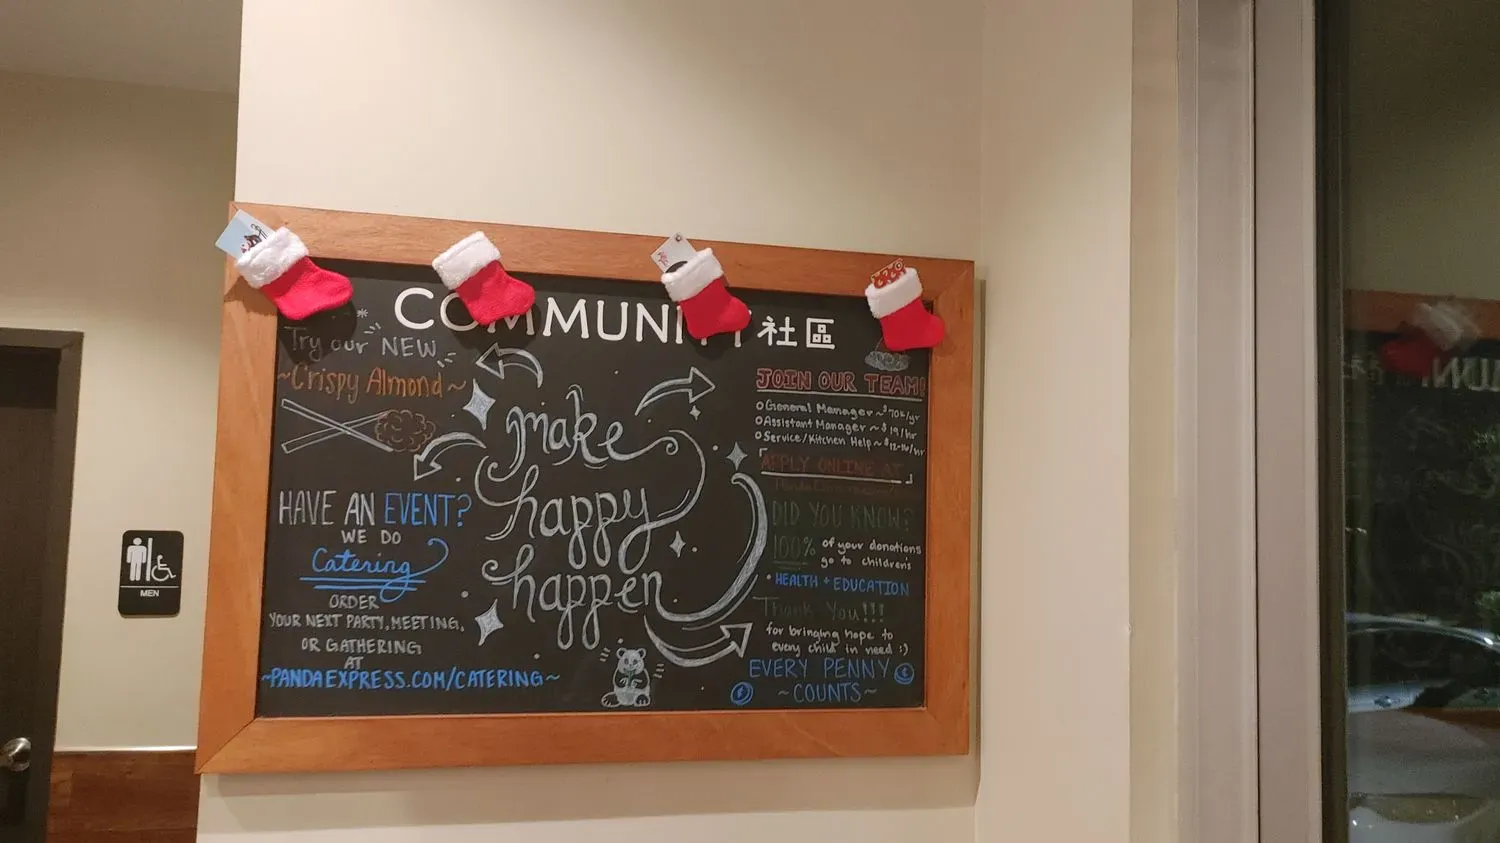 COMMUNITY 社區
Try our NEW
~Crispy Almond~
HAVE AN EVENT?
WE DO
Catering
ORDER
YOUR NEXT PARTY, MEETING,
OR GATHERING
AT
~PANDAEXPRESS.COM/CATERING~
make
happy
happen
JOIN OUR TEAM!
General Manager ~ $70k/yr
Assistant Manager ~ $19/hr
Service/Kitchen Help ~
APPLY ONLINE AT
DID YOU KNOW?
100% of your donations
go to childrens
• HEALTH + EDUCATION
Thank You!!!
for bringing hope to
every child in need :)
EVERY PENNY
~COUNTS~
MEN